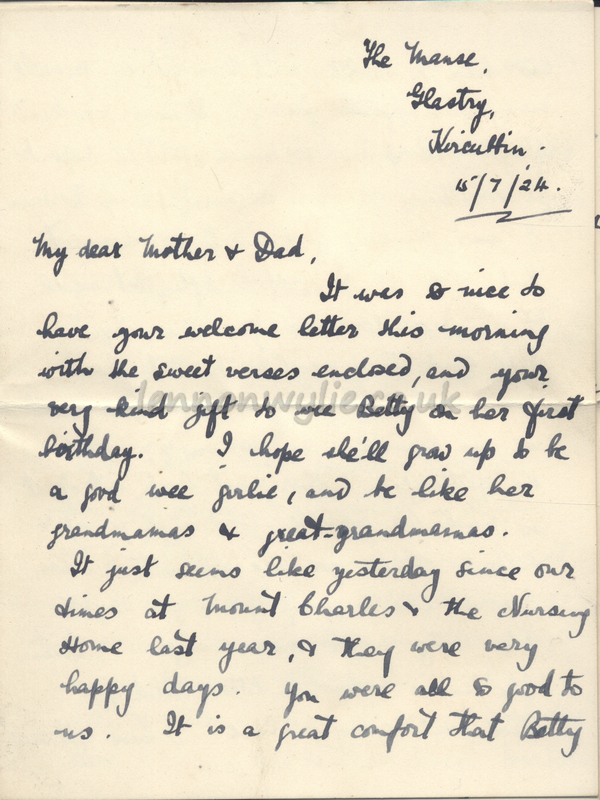 The Manse,
Glastry,
Kircubbin.
15/7/24.
My dear Mother & Dad,
It was so nice to
have your welcome letter this morning
with the sweet verses enclosed, and your
lennonwylie.co.uk
very kind gift to wee Betty on her first
birthday. I hope she'll grow up to be
a good wee girlie, and be like her
grandmamas & great-grandmamas.
It just seems like yesterday since our
times at Mount Charles & the Nursing
Home last year, & they were very
happy days. You were all so good to
us. It is a great comfort that Betty